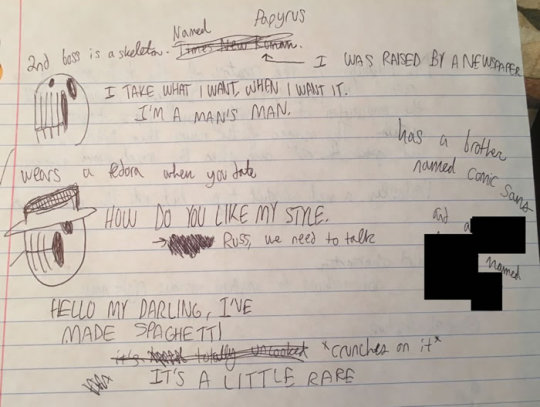 Named Papyrus
2nd boss is a skeleton. Times New Roman.
I WAS RAISED BY A NEWSPAPER
I TAKE WHAT I WANT, WHEN I WANT IT.
I'M A MAN'S MAN.
has a brother
named comic sans
and a
named
wears a fedora when you date
HOW DO YOU LIKE MY STYLE.
Russ, we need to talk
HELLO MY DARLING, I'VE
MADE SPAGHETTI
it's totally uncooked *crunches on it*
IT'S A LITTLE RARE